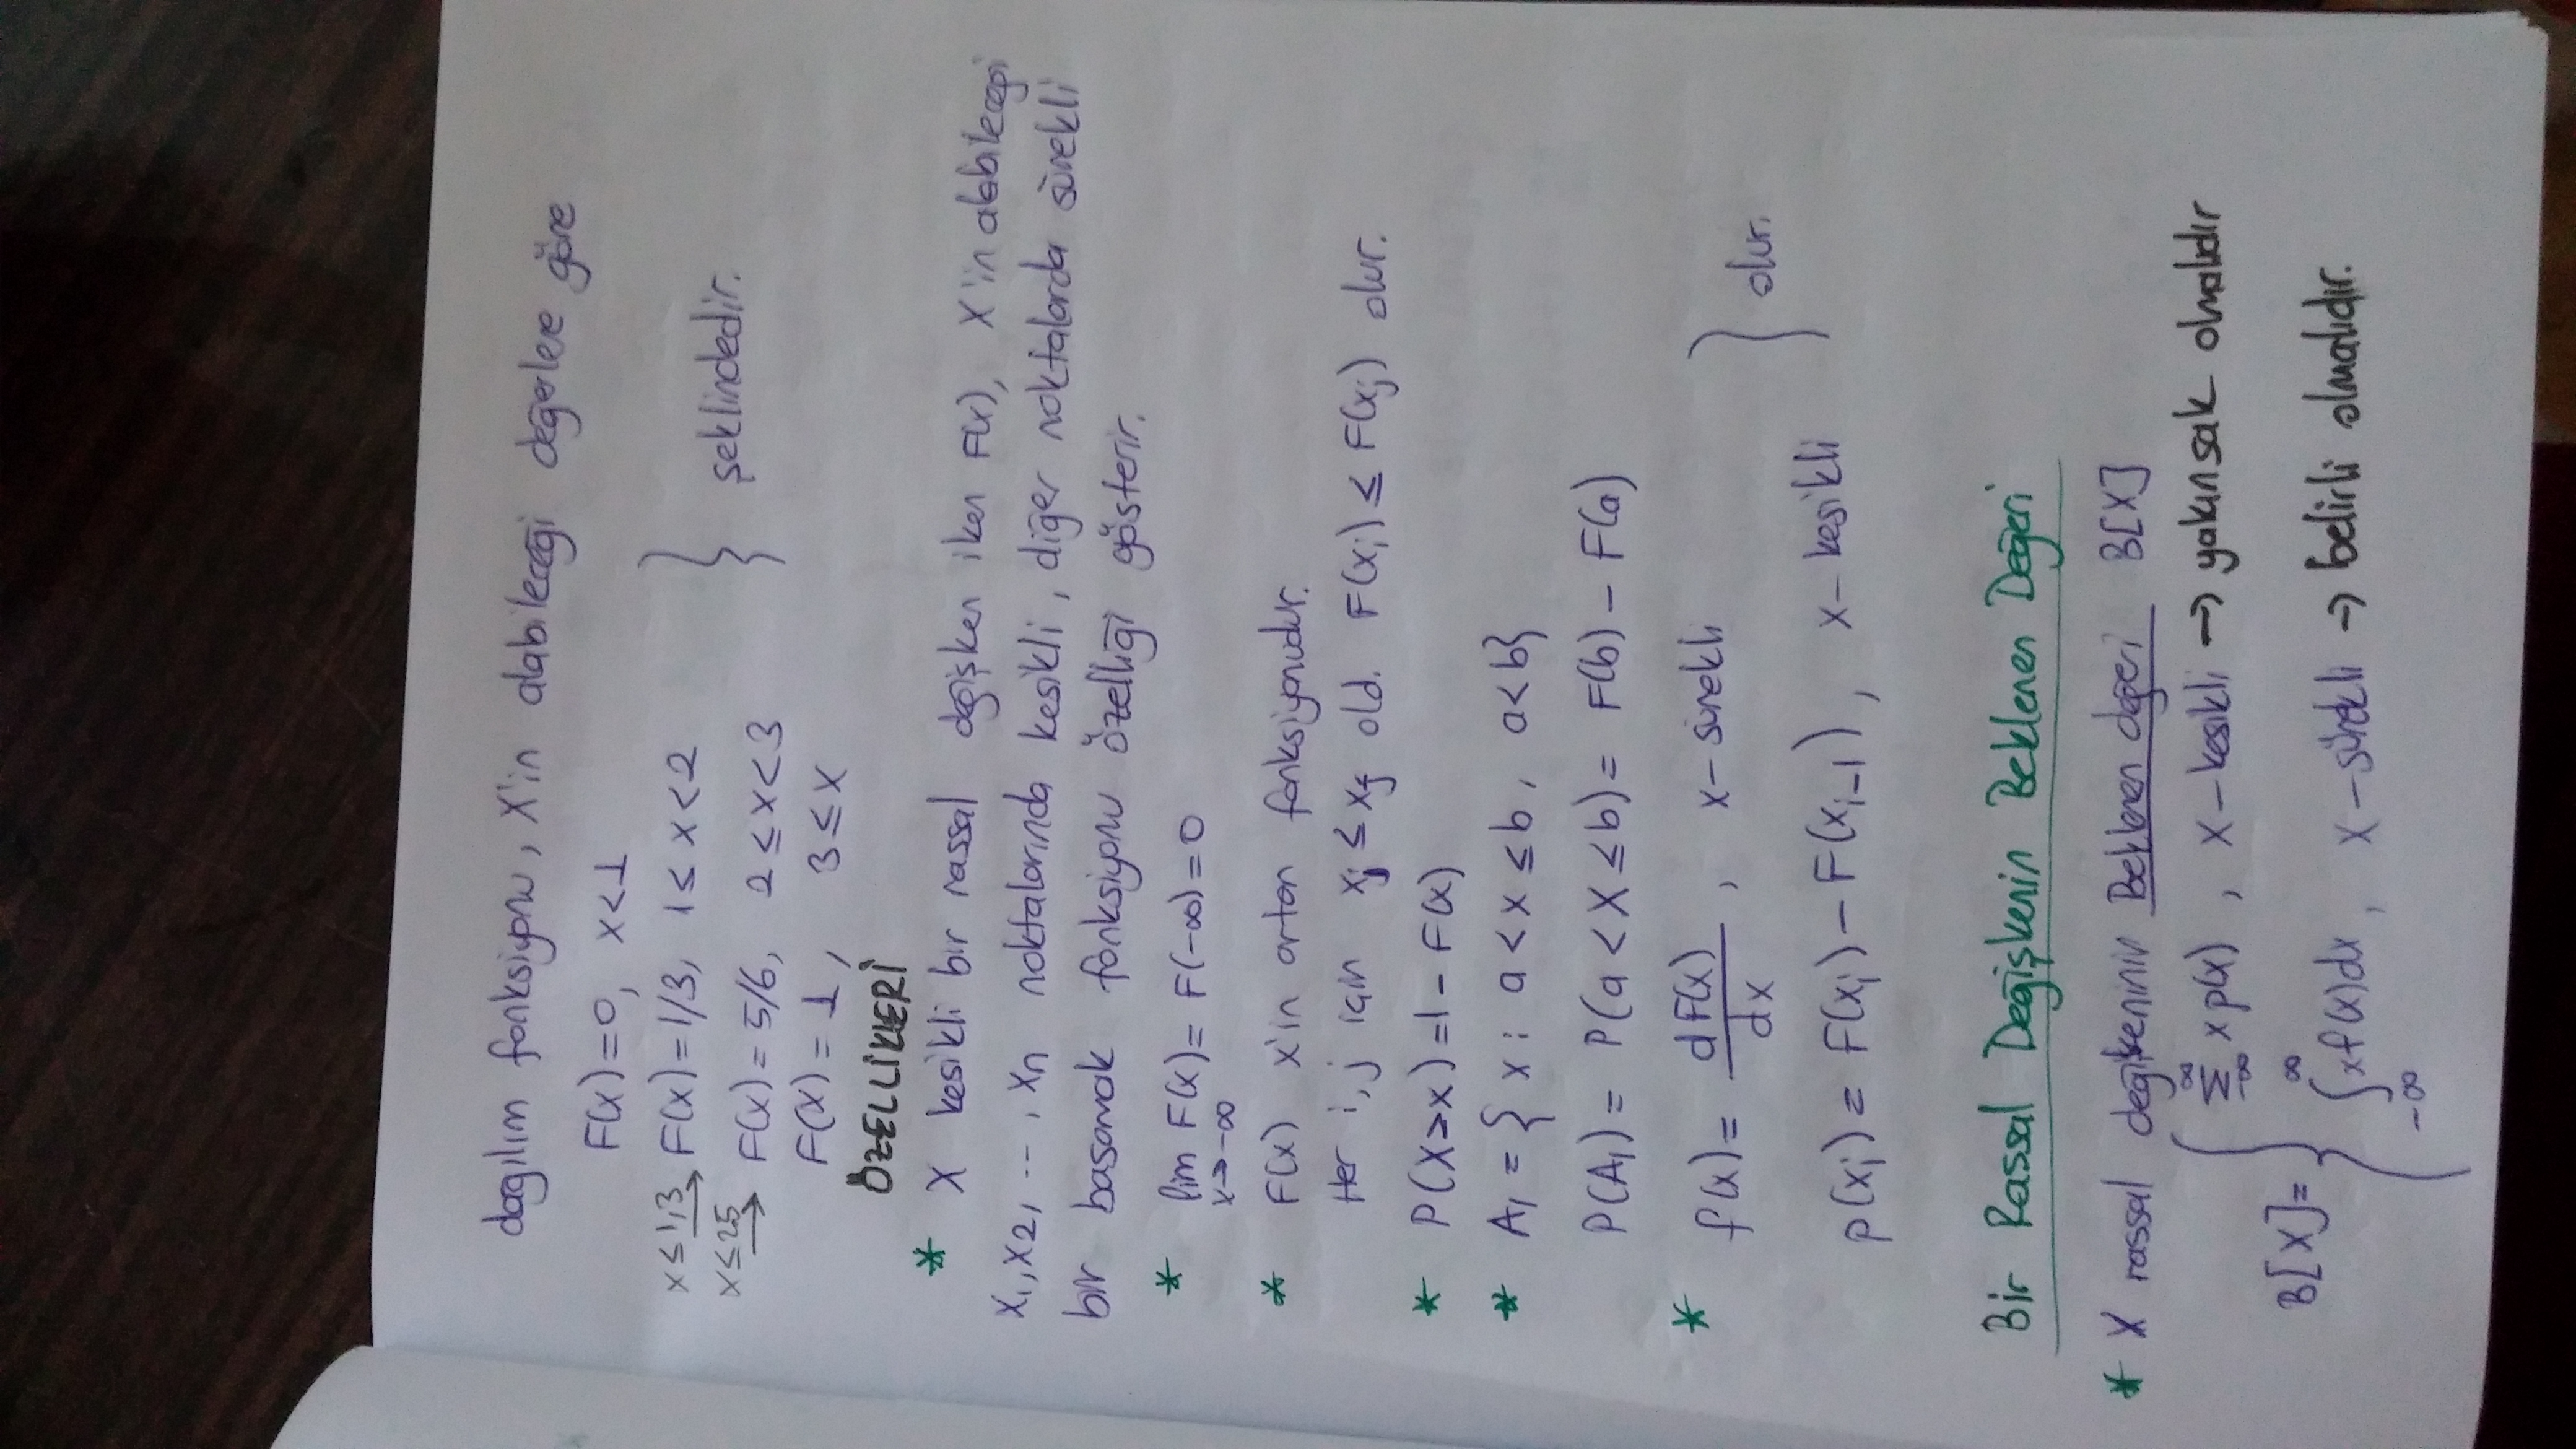 dağılım fonksiyonu, X'in alabileceği değerlere göre
F(x)=0, x<1
x≤1,3 → F(x)=1/3, 1≤x<2
x≤2,5 → F(x)=5/6, 2≤x<3
F(x)=1, 3≤x
} şeklindedir.
ÖZELLİKLERİ
* X kesikli bir rassal değişken iken F(x), X'in alabileceği
x₁,x₂, ..., xn noktalarında kesikli, diğer noktalarda sürekli
bir basamak fonksiyonu özelliği gösterir.
* lim F(x)= F(-∞)=0
x→-∞
* F(x) x'in artan fonksiyonudur.
Her i,j için xᵢ≤xⱼ old. F(xᵢ)≤F(xⱼ) olur.
* P(X>x)=1-F(x)
* A₁={x: a<x≤b, a<b}
P(A₁)= P(a<X≤b)= F(b)-F(a)
* f(x)= dF(x)/dx, x-sürekli
p(xᵢ)= F(xᵢ)-F(xᵢ₋₁), x-kesikli
} olur.
Bir Rassal Değişkenin Beklenen Değeri
* X rassal değişkeninin Beklenen değeri B[X]
B[X]= {
∞ Σ -∞ x p(x), x-kesikli → yakınsak olmalıdır
∞ ∫ -∞ x f(x)dx, x-sürekli → belirli olmalıdır.